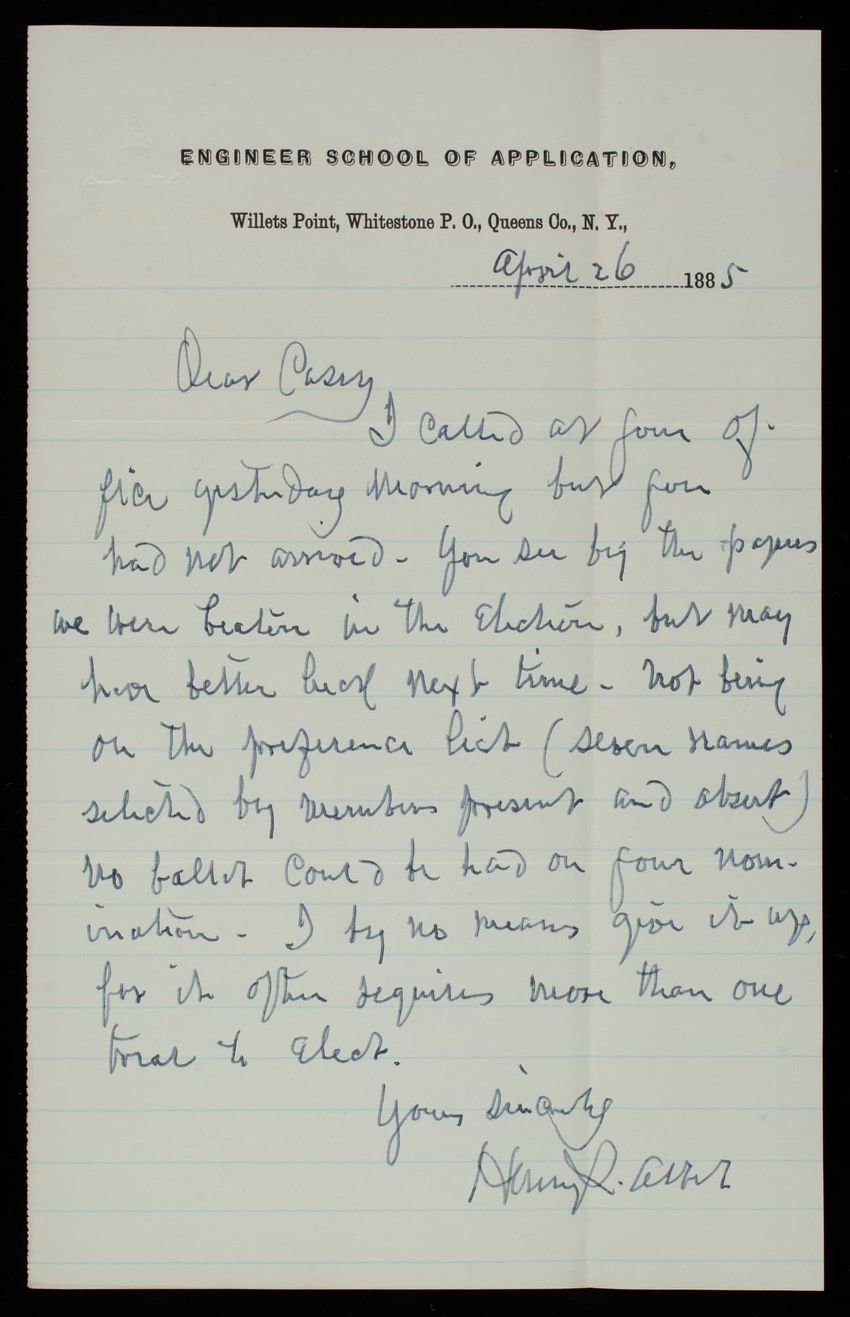 ENGINEER SCHOOL OF APPLICATION,
Willets Point, Whitestone P. O., Queens Co., N. Y.,
April 26 1885
Dear Casey
I called at your of-
fice yesterday morning but you
had not arrived - You see by the papers
we were beaten in the Election, but may
have better luck next time - Not being
on the preference list (seven names
selected by members present and absent)
no ballot could be had on your nom-
ination - I by no means give it up,
for it often requires more than one
trial to Elect.
Yours sincerely
Henry L. Abbot